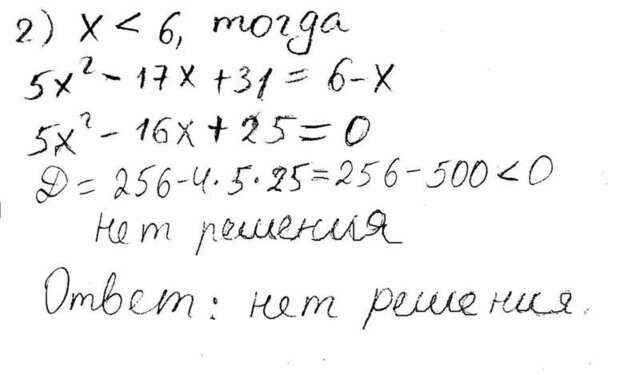 2) x < 6, тогда
5x² - 17x + 31 = 6 - x
5x² - 16x + 25 = 0
Д = 256 - 4 · 5 · 25 = 256 - 500 < 0
нет решения
Ответ: нет решения.